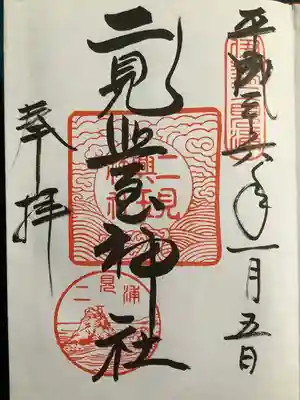 平成二十六年一月五日
二見興玉神社
二見
興玉
神社
二見浦
奉拝